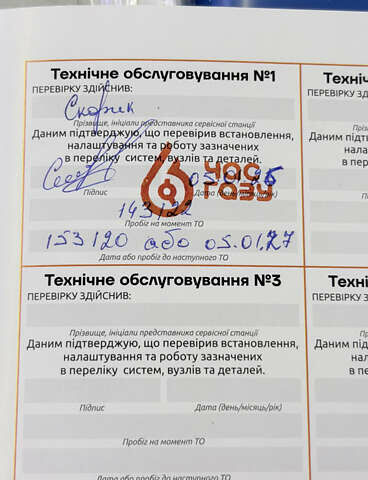 Технічне обслуговування №1
ПЕРЕВІРКУ ЗДІЙСНИВ:
Скорик
Прізвище, ініціали представника сервісної станції
Даним підтверджую, що перевірив встановлення,
налаштування та роботу зазначених
в переліку систем, вузлів та деталей.
ЧАС
ГАЗУ
05.01.26
Підпис
Дата (день/місяць/рік)
143122
Пробіг на момент ТО
153120 або 05.01.27
Дата або пробіг до наступного ТО
Технічне обслуговування №3
ПЕРЕВІРКУ ЗДІЙСНИВ:
Прізвище, ініціали представника сервісної станції
Даним підтверджую, що перевірив встановлення,
налаштування та роботу зазначених
в переліку систем, вузлів та деталей.
Підпис
Дата (день/місяць/рік)
Пробіг на момент ТО
Дата або пробіг до наступного ТО